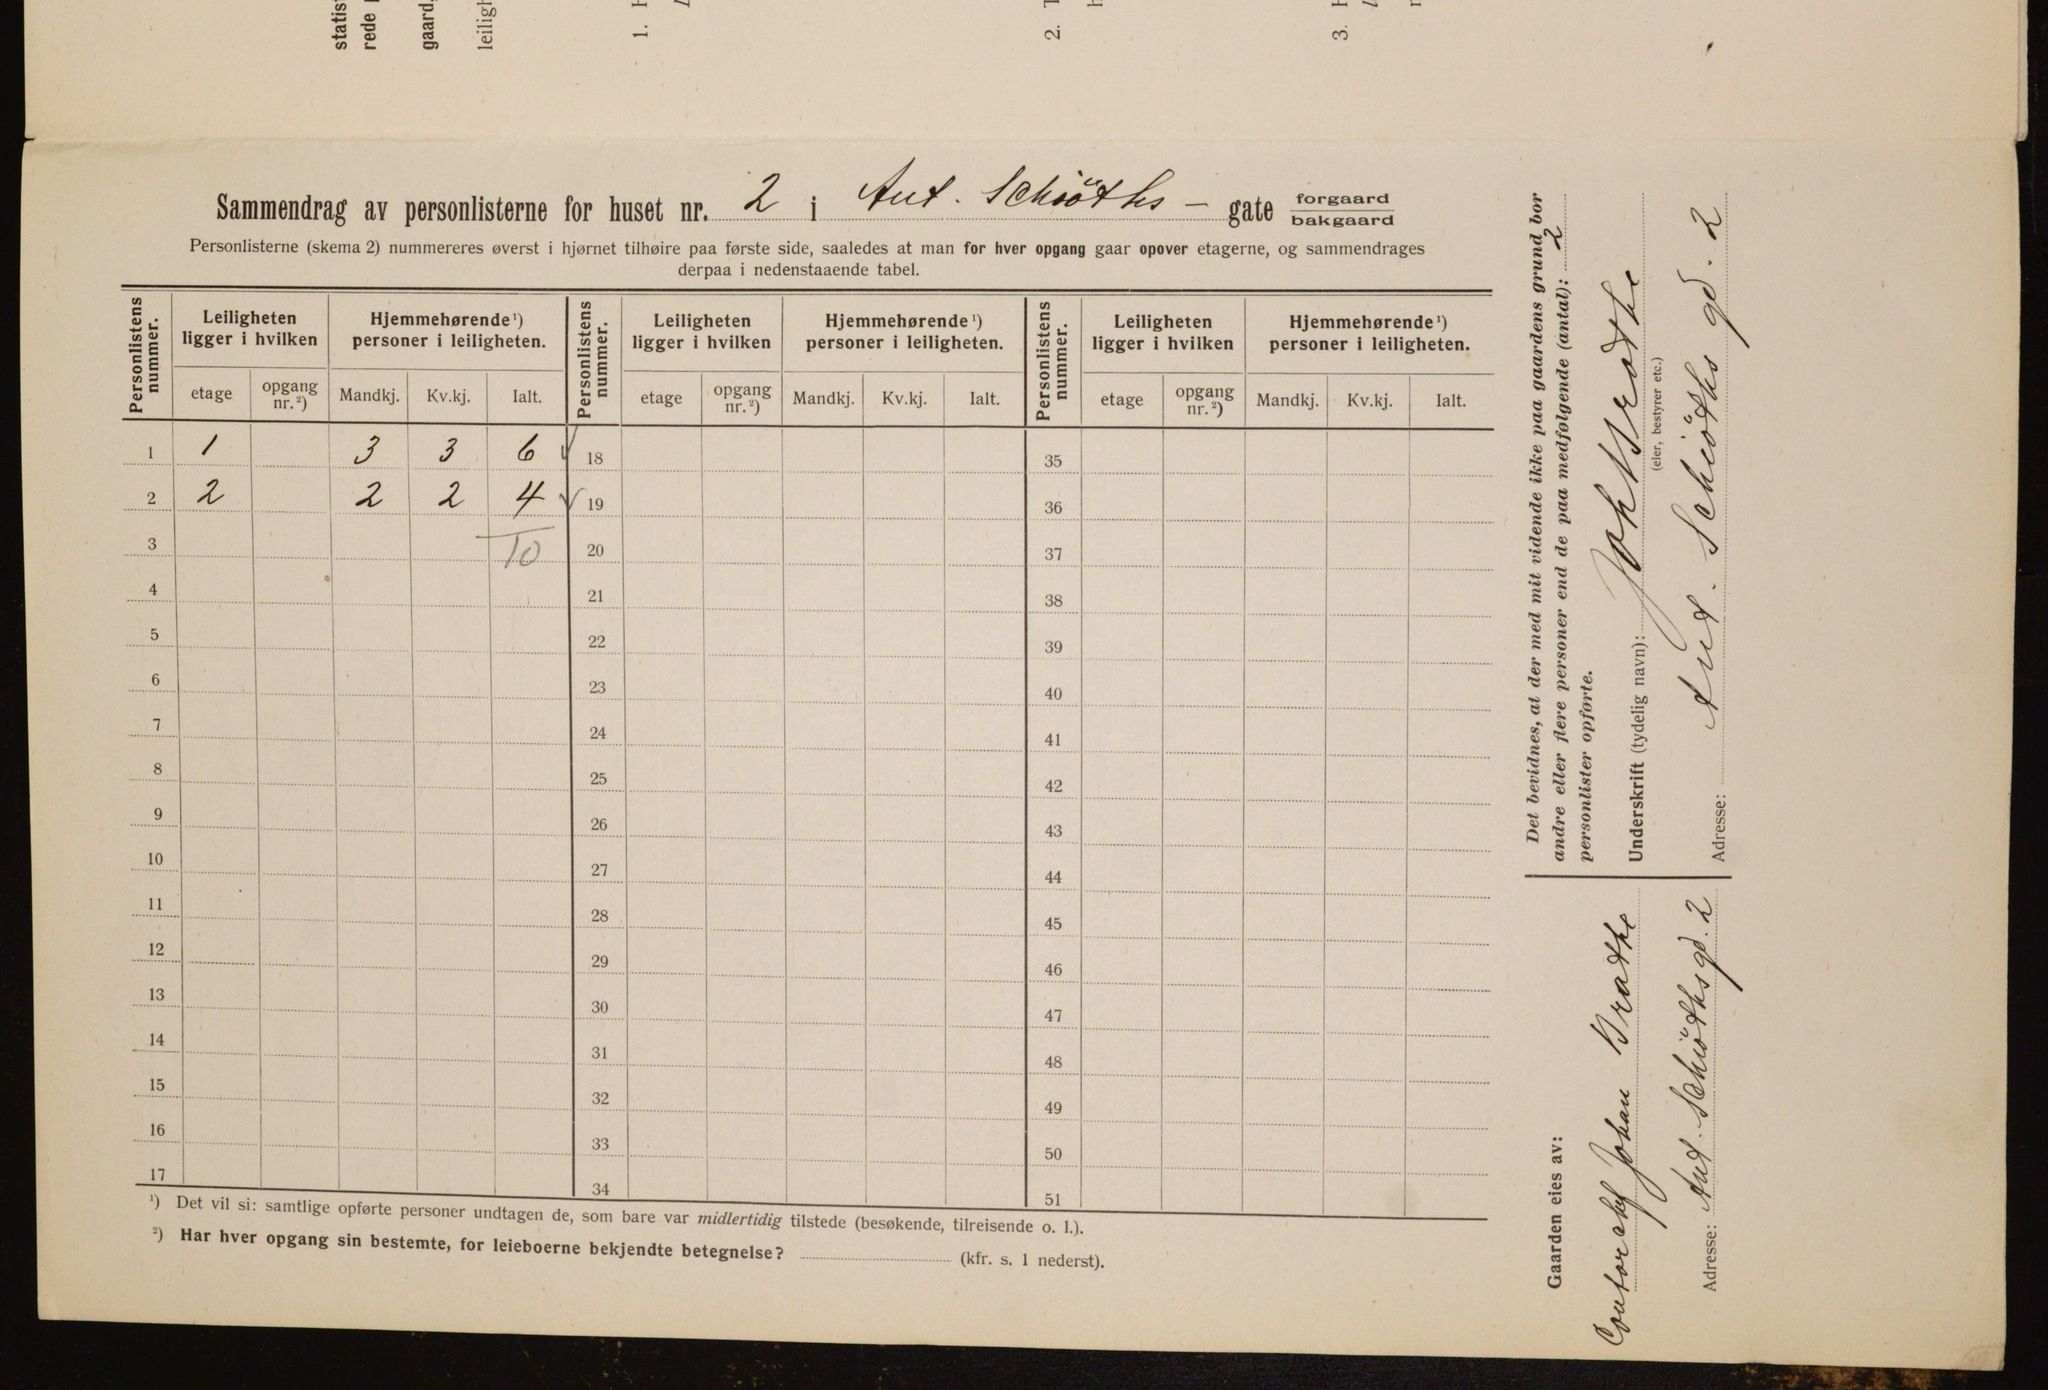 statis
rede
gaard
leiligh
1. H
2. T
3. H
Sammendrag av personlisterne for huset nr. 2 i Ant. Schiöths - gate forgaard bakgaard
Personlisterne (skema 2) nummereres øverst i hjørnet tilhøire paa første side, saaledes at man for hver opgang gaar opover etagerne, og sammendrages
derpaa i nedenstaaende tabel.
Personlistens nummer. Leiligheten ligger i hvilken Hjemmehørende ¹) personer i leiligheten. Personlistens nummer. Leiligheten ligger i hvilken Hjemmehørende ¹) personer i leiligheten. Personlistens nummer. Leiligheten ligger i hvilken Hjemmehørende ¹) personer i leiligheten.
etage opgang nr. ²) Mandkj. Kv.kj. Ialt. etage opgang nr. ²) Mandkj. Kv.kj. Ialt. etage opgang nr. ²) Mandkj. Kv.kj. Ialt.
1 1 3 3 6 √ 18 35
2 2 2 2 4 √ 19 36
3 10 20 37
4 21 38
5 22 39
6 23 40
7 24 41
8 25 42
9 26 43
10 27 44
11 28 45
12 29 46
13 30 47
14 31 48
15 32 49
16 33 50
17 34 51
¹) Det vil si: samtlige opførte personer undtagen de, som bare var midlertidig tilstede (besøkende, tilreisende o. l.).
²) Har hver opgang sin bestemte, for leieboerne bekjendte betegnelse? (kfr. s. 1 nederst).
Det bevidnes, at der med mit vidende ikke paa gaardens grund bor
andre eller flere personer end de paa medfølgende (antal): 2
personlister opførte.
Underskrift (tydelig navn): Joh Brathe
(eier, bestyrer etc.)
Adresse: Ant. Schiöths gd. 2
Gaarden eies av:
Johan Brathe
Adresse: Ant. Schiöths gd. 2